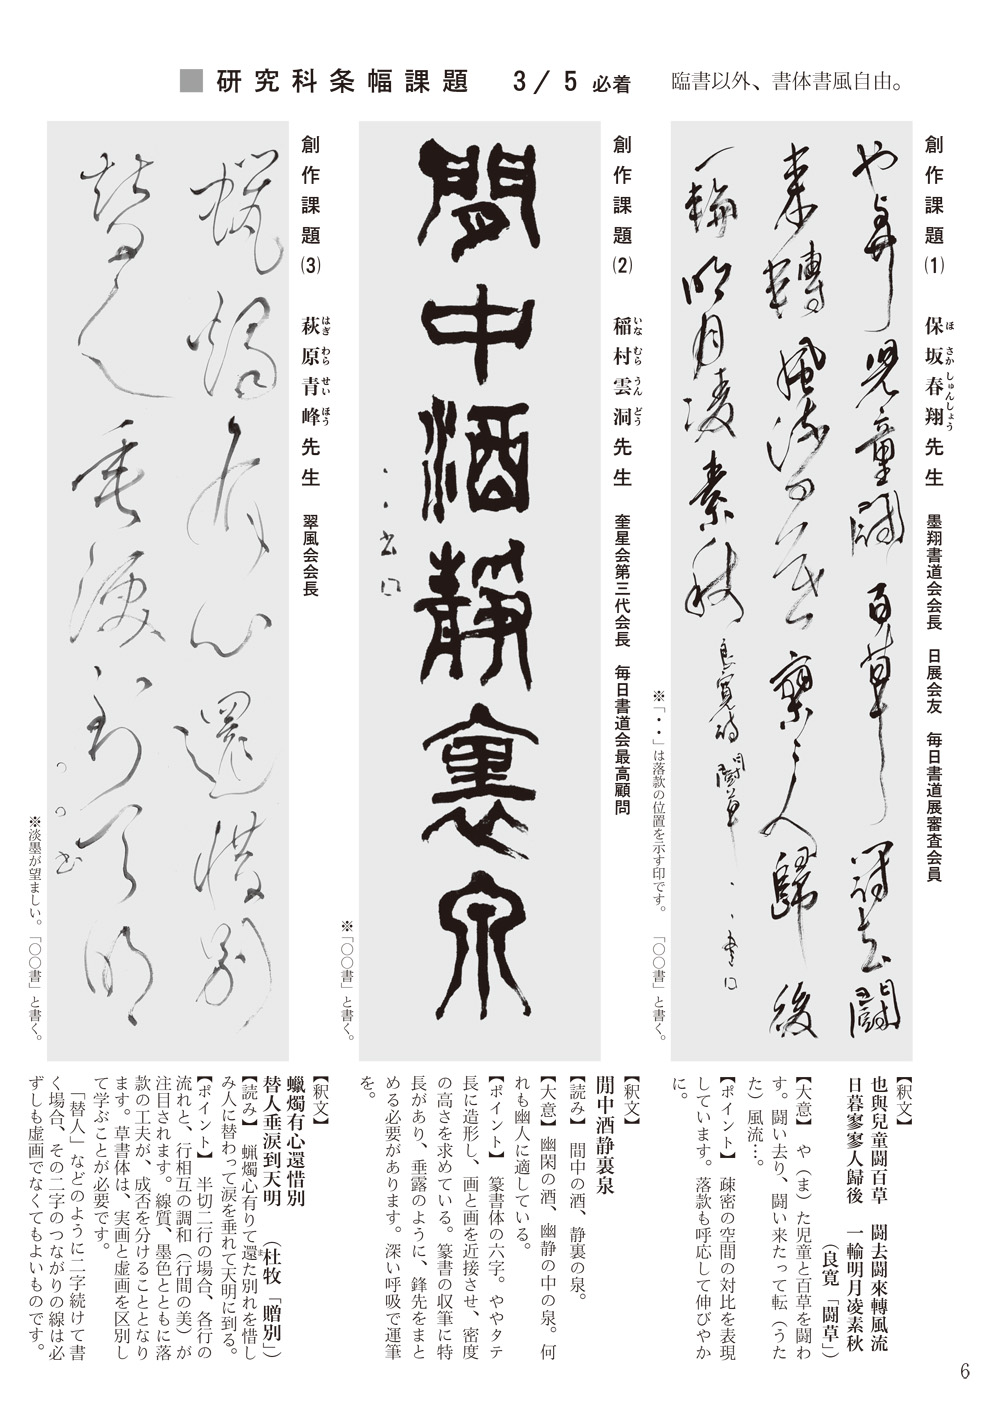 ■研究科条幅課題 3/5必着 臨書以外、書体書風自由。
創作課題(1) 保坂春翔先生 墨翔書道会会長 日展会友 毎日書道展審査会員
ほ さか しゅんしょう
也與兒童闘百草 闘去闘
來轉風流日暮寥寥人歸後
一輪明月凌素秋 良寛詩 闘草 ・・書
※「・・」は落款の位置を示す印です。 「○○書」と書く。
【釈文】
也與兒童闘百草 闘去闘來轉風流
日暮寥寥人歸後 一輪明月凌素秋
(良寛「闘草」)
【大意】 や(ま)た児童と百草を闘わ
す。闘い去り、闘い来たって転(うた
た)風流…。
【ポイント】 疎密の空間の対比を表現
しています。落款も呼応して伸びやか
に。
創作課題(2) 稲村雲洞先生 奎星会第三代会長 毎日書道会最高顧問
いな むら うん どう
閒中酒静裏泉
・・書
※「○○書」と書く。
【釈文】
閒中酒静裏泉
【読み】 間中の酒、静裏の泉。
【大意】 幽閑の酒、幽静の中の泉。何
れも幽人に適している。
【ポイント】 篆書体の六字。ややタテ
長に造形し、画と画を近接させ、密度
の高さを求めている。篆書の収筆に特
長があり、垂露のように、鋒先をまと
める必要があります。深い呼吸で運筆
を。
創作課題(3) 萩原青峰先生 翠風会会長
はぎ わら せい ほう
蠟燭有心還惜別
替人垂涙到天明
○○書
※淡墨が望ましい。 「○○書」と書く。
【釈文】
蠟燭有心還惜別
替人垂涙到天明 (杜牧「贈別」)
【読み】 蝋燭心有りて還た別れを惜し
ま
み人に替わって涙を垂れて天明に到る。
【ポイント】 半切二行の場合、各行の
流れと、行相互の調和(行間の美)が
注目されます。線質、墨色とともに落
款の工夫が、成否を分けることとなり
ます。草書体は、実画と虚画を区別し
て学ぶことが必要です。
「替人」などのように二字続けて書
く場合、その二字のつながりの線は必
ずしも虚画でなくてもよいものです。
6